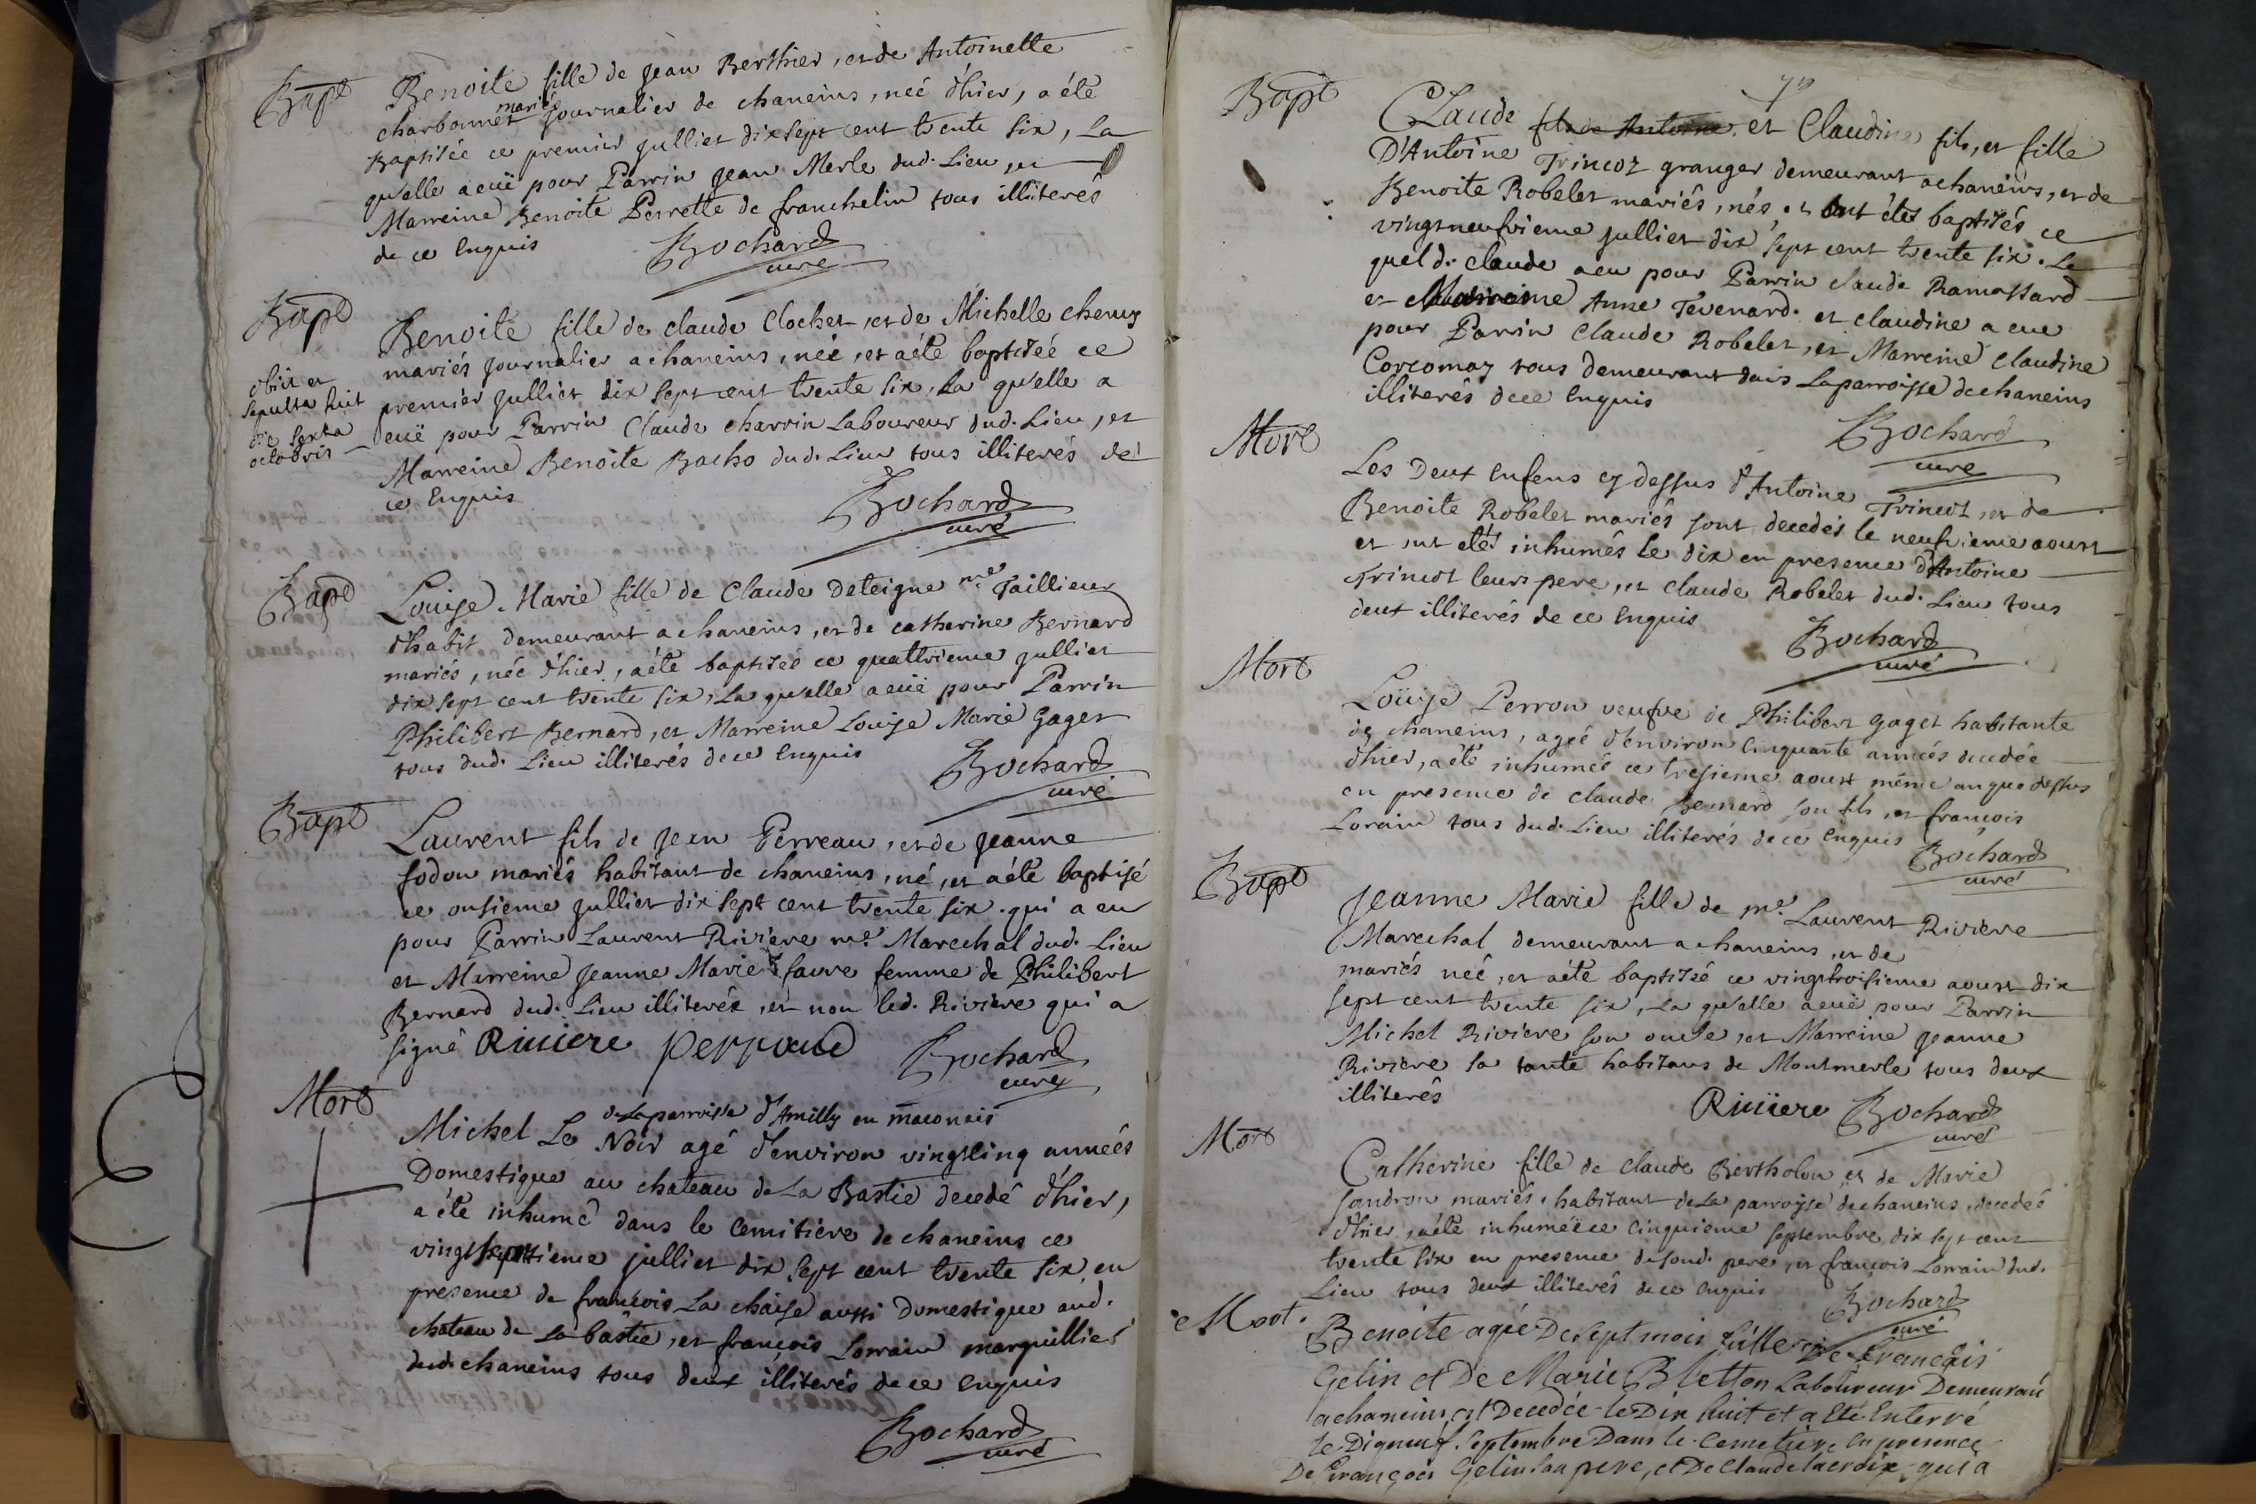 Bapt
Benoite fille de Jean Berthier, et de Antoinette
mariés
charbonnet journalier de chaneins, née d'hier, a été
Baptisée ce premier jullier dix sept cent trente six, La
qu'elle a euë pour Parrin Jean Merle dud. Lieu, et
Marreine Benoite Perrette de franchelin tous illiterés
de ce Enquis
Bochard
curé
Bapt
Benoite fille de claude Clochet, et de Michelle cheruy
mariés journalier a chaneins, née, et a été baptisée ce
premier jullier dix sept cent trente six, La qu'elle a
euë pour Parrin Claude charvin Laboureur dud. Lieu, et
Marreine Benoite Bacho dud. Lieu tous illiterés de
ce Enquis
obiit et
sepulta fuit
die sexta
octobris
Bochard
curé
Bapt
Louise Marie fille de Claude Deteigne me. Taillieur
d'habit demeurant a chaneins, et de catherine Bernard
mariés, née d'hier, a été baptisée ce quattrieme jullier
dix sept cent trente six, La qu'elle a euë pour Parrin
Philibert Bernard, et Marreine Louise Marie Gaget
tous dud. Lieu illiterés de ce Enquis
Bochard
curé
Bapt
Laurent fils de Jean Perreau, et de Jeanne
fodon mariés habitant de chaneins, né, et a été baptisé
ce onsieme jullier dix sept cent trente six. qui a eu
pour Parrin Laurent Riviere me. Marechal dud. Lieu
et Marreine Jeanne Marie favre femme de Philibert
Bernard dud. Lieu illiterés, et non led. Riviere qui a
signé Riuiere perroud
Bochard
curé
Mort
de La parroisse d'Amilly en maconais
Michel Le Noir agé d'environ vingtcinq années
Domestique au chateau de La Bastie decedé d'hier,
a été inhumé dans le cemitiere de chaneins ce
vingtseptieme jullier dix sept cent trente six en
presence de francois La chaise aussi Domestique aud.
chateau de La bastie, et françois Lorrain marguillier
dud. chaneins tous deux illiterés de ce Enquis
Bochard
curé
Bapt
Claude fils de Antoine et Claudine fils, et fille
D'Antoine Trincoz granger demeurant a chaneins, et de
Benoite Robelet mariés, nés, et ont étés baptisés ce
vingtneufvieme jullier dix sept cent trente six. Le
quel d. claude a eu pour Parrin claude Ramassard
et Marreine Anne Tevenard. et claudine a eue
pour Parrin Claude Robelet, et Marreine Claudine
Corcomay tous demeurant dans La parroisse de chaneins
illiterés de ce Enquis
Bochard
curé
Mort
Les Deux Enfens cy dessus d'Antoine Trincoz, et de
Benoite Robelet mariés sont decedés le neufvieme aoust
et ont etés inhumés le dix en presence d'Antoine
Trincot leurs pere, et claude Robelet dud. Lieu tous
deux illiterés de ce Enquis
Bochard
curé
Mort
Loüise Perron veufve de Philibert Gaget habitante
de chaneins, ageé d'environ Cinquante années decedée
d'hier, a été inhumée ce tresieme aoust même an que dessus
en presence de claude Bernard son fils, et francois
Lorain tous dud. Lieu illiterés de ce Enquis
Bochard
curé
Bapt
Jeanne Marie fille de me. Laurent Riviere
Marechal demeurant a chaneins, et de
mariés neé, et a été baptisé ce vingttroisieme aoust dix
sept cent trente six, La qu'elle a euë pour Parrin
Michel Riviere son oncle, et Marreine Jeanne
Riviere sa tante habitans de Montmerle tous deux
illiterés
Riuiere
Bochard
curé
Mort
Catherine fille de claude Bertholon, et de Marie
sondron mariés, habitant de La parroisse de chaneins, decedeé
d'hier, a été inhumeé ce Cinquieme septembre dix sept cent
trente six en presence de sond. pere, et francois Lorrain dud.
Lieu tous deux illiterés de ce Enquis
Bochard
curé
Mort.
Benoite agée De sept mois fille De francois
Gelin et De Marie Bletton Laboureur Demeurant
a chaneins est Decedée le Dix huit et a Eté Enterré
le Digneuf Septembre Dans le cemetiere En presence
De François Gelin son pere, et De Claude lacroix qui a